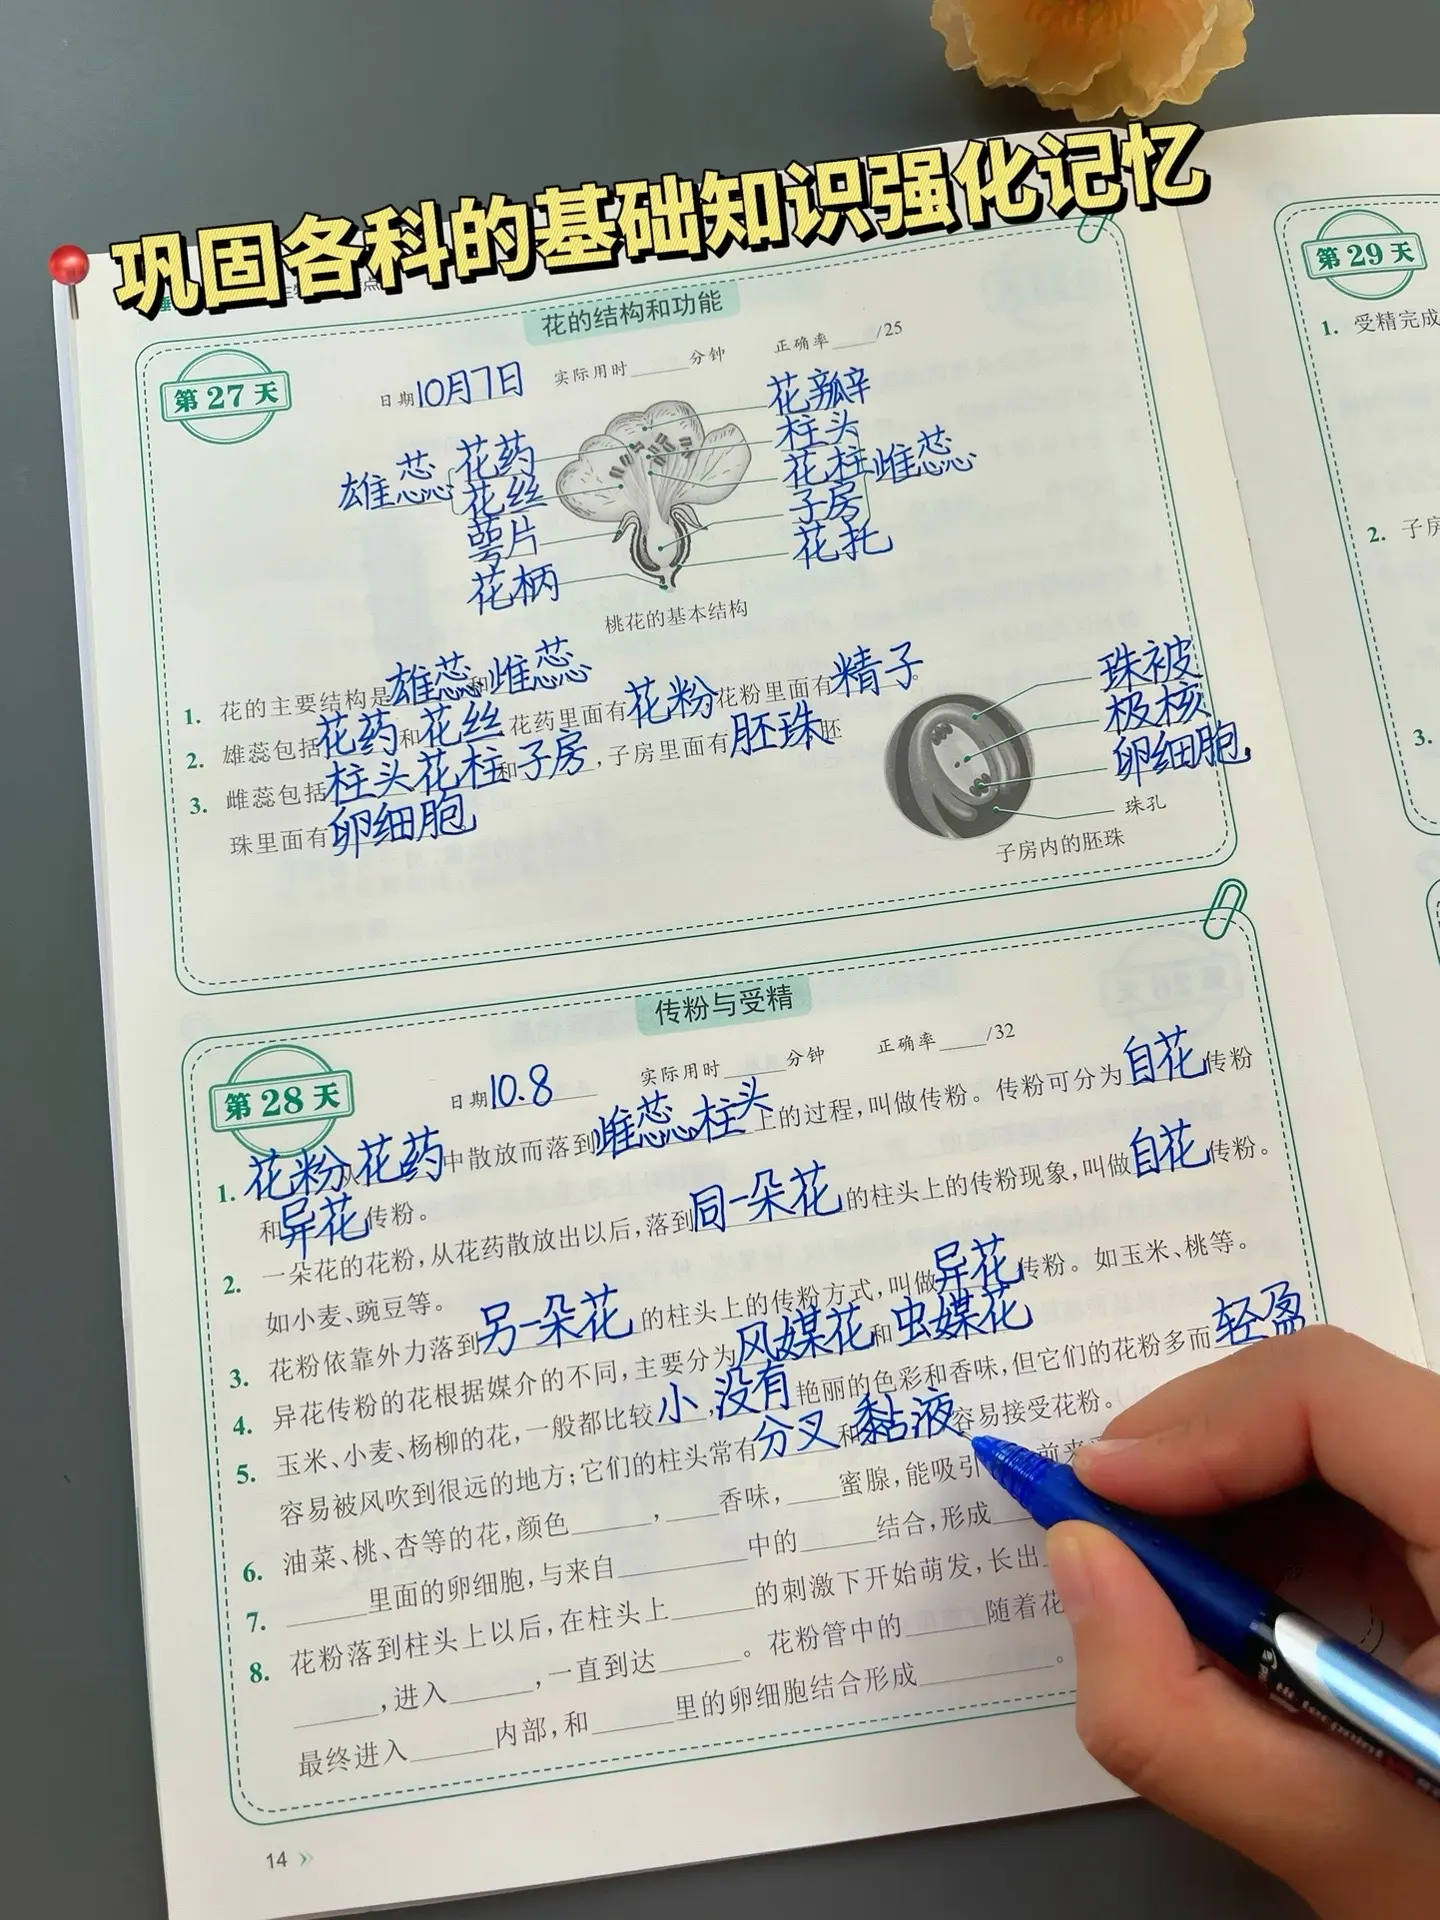 巩固各科的基础知识强化记忆
花的结构和功能
第27天
日期10月7日 实际用时____分钟 正确率____/25
花瓣
柱头
花柱 雌蕊
子房
花托
雄蕊 花药
花丝
萼片
花柄
桃花的基本结构
1. 花的主要结构是雄蕊和雌蕊
2. 雄蕊包括花药和花丝 花药里面有花粉 花粉里面有精子。
3. 雌蕊包括柱头花柱和子房,子房里面有胚珠 胚
珠里面有卵细胞
珠被
极核
卵细胞
珠孔
子房内的胚珠
传粉与受精
第28天
日期10.8 实际用时____分钟 正确率____/32
1. 花粉从花药中散放而落到雌蕊柱头上的过程,叫做传粉。传粉可分为自花传粉
和异花传粉。
2. 一朵花的花粉,从花药散放出以后,落到同一朵花的柱头上的传粉现象,叫做自花传粉。
如小麦、豌豆等。
3. 花粉依靠外力落到另一朵花的柱头上的传粉方式,叫做异花传粉。如玉米、桃等。
4. 异花传粉的花根据媒介的不同,主要分为风媒花和虫媒花
5. 玉米、小麦、杨柳的花,一般都比较小,没有艳丽的色彩和香味,但它们的花粉多而轻盈
容易被风吹到很远的地方;它们的柱头常有分叉和黏液容易接受花粉。
6. 油菜、桃、杏等的花,颜色____,____香味,____蜜腺,能吸引 前来
7. ____里面的卵细胞,与来自____中的____结合,形成
8. 花粉落到柱头上以后,在柱头上____的刺激下开始萌发,长出
____,进入____,一直到达____。花粉管中的____随着花
最终进入____内部,和____里的卵细胞结合形成____。
14
第29天
1. 受精完成
2. 子房
3.